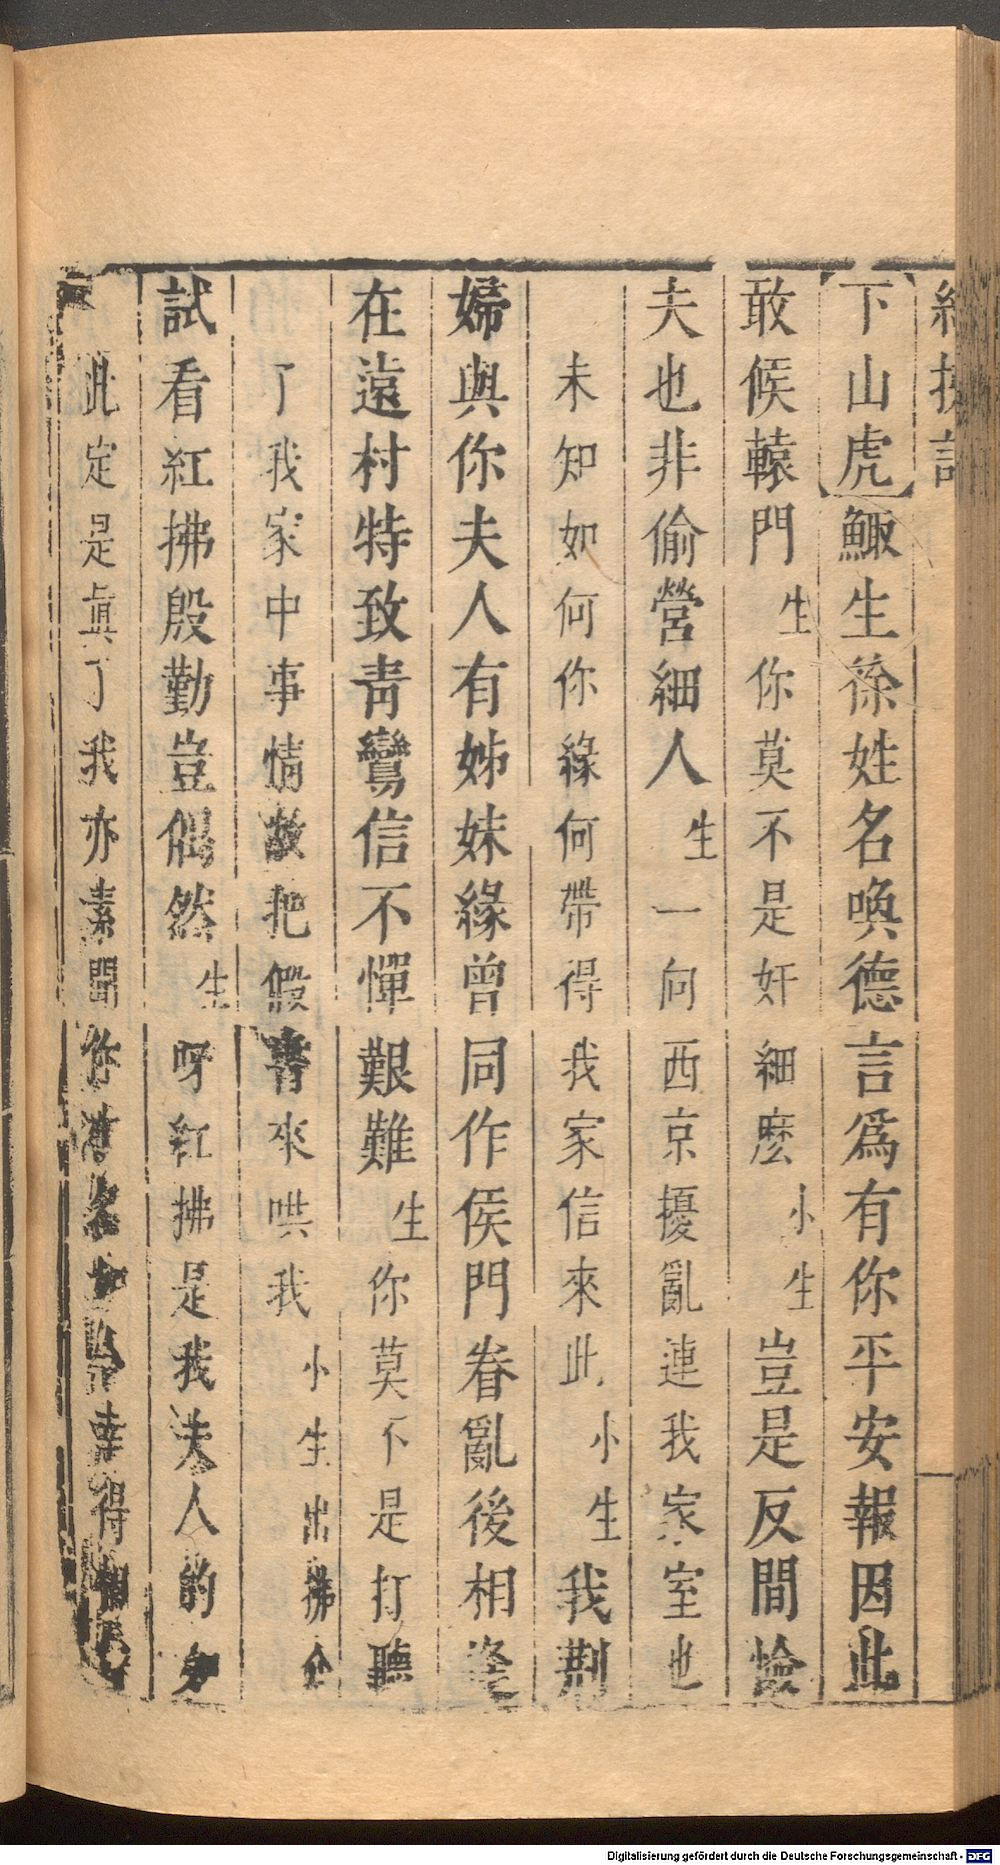 紅拂記
下山虎鯫生徐姓名喚德言爲有你平安報因此
敢候轅門生你莫不是奸細麽小生豈是反間憸
夫也非偷營細人生一向西京擾亂連我家室也
未知如何你緣何帶得我家信來此小生我荆
婦與你夫人有姊妹緣曾同作侯門眷亂後相逢
在遠村特致靑鸞信不憚艱難生你莫不是打聽
了我家中事情故把假書來哄我小生出拂介
試看紅拂殷勤豈偶然生呀紅拂是我夫人的
此定是眞了我亦素聞你才名幸得相
Digitalisierung gefördert durch die Deutsche Forschungsgemeinschaft - DFG